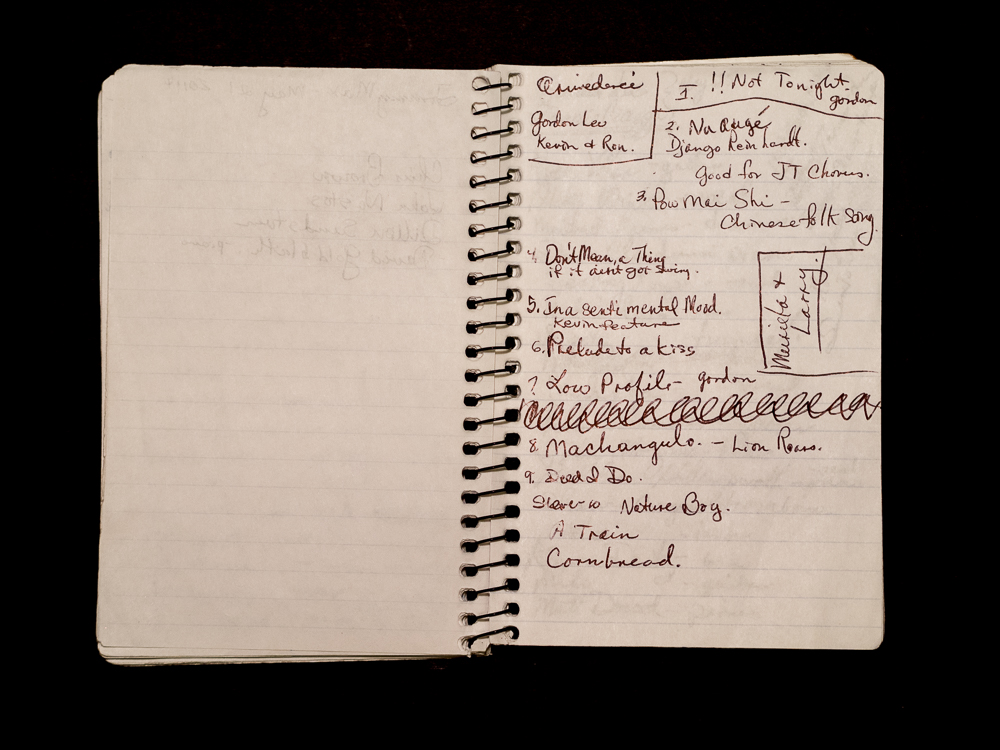 Gordon Lev
Kevin & Ron.
I. !! Not Tonight.
gordon
2. Nuagé
Django Reinhardt.
good for JT Chorus.
3. Pow Mai Shi -
Chinese folk song
4. Don't Mean, a Thing
if it ain't got swing.
5. In a sentimental Mood.
Kevin feature
Larry.
6. Prelude to a kiss
7 Low Profile - gordon
8. Machangulo. - Lion Roars.
9. Deed I Do.
Nature Boy.
A Train
Cornbread.